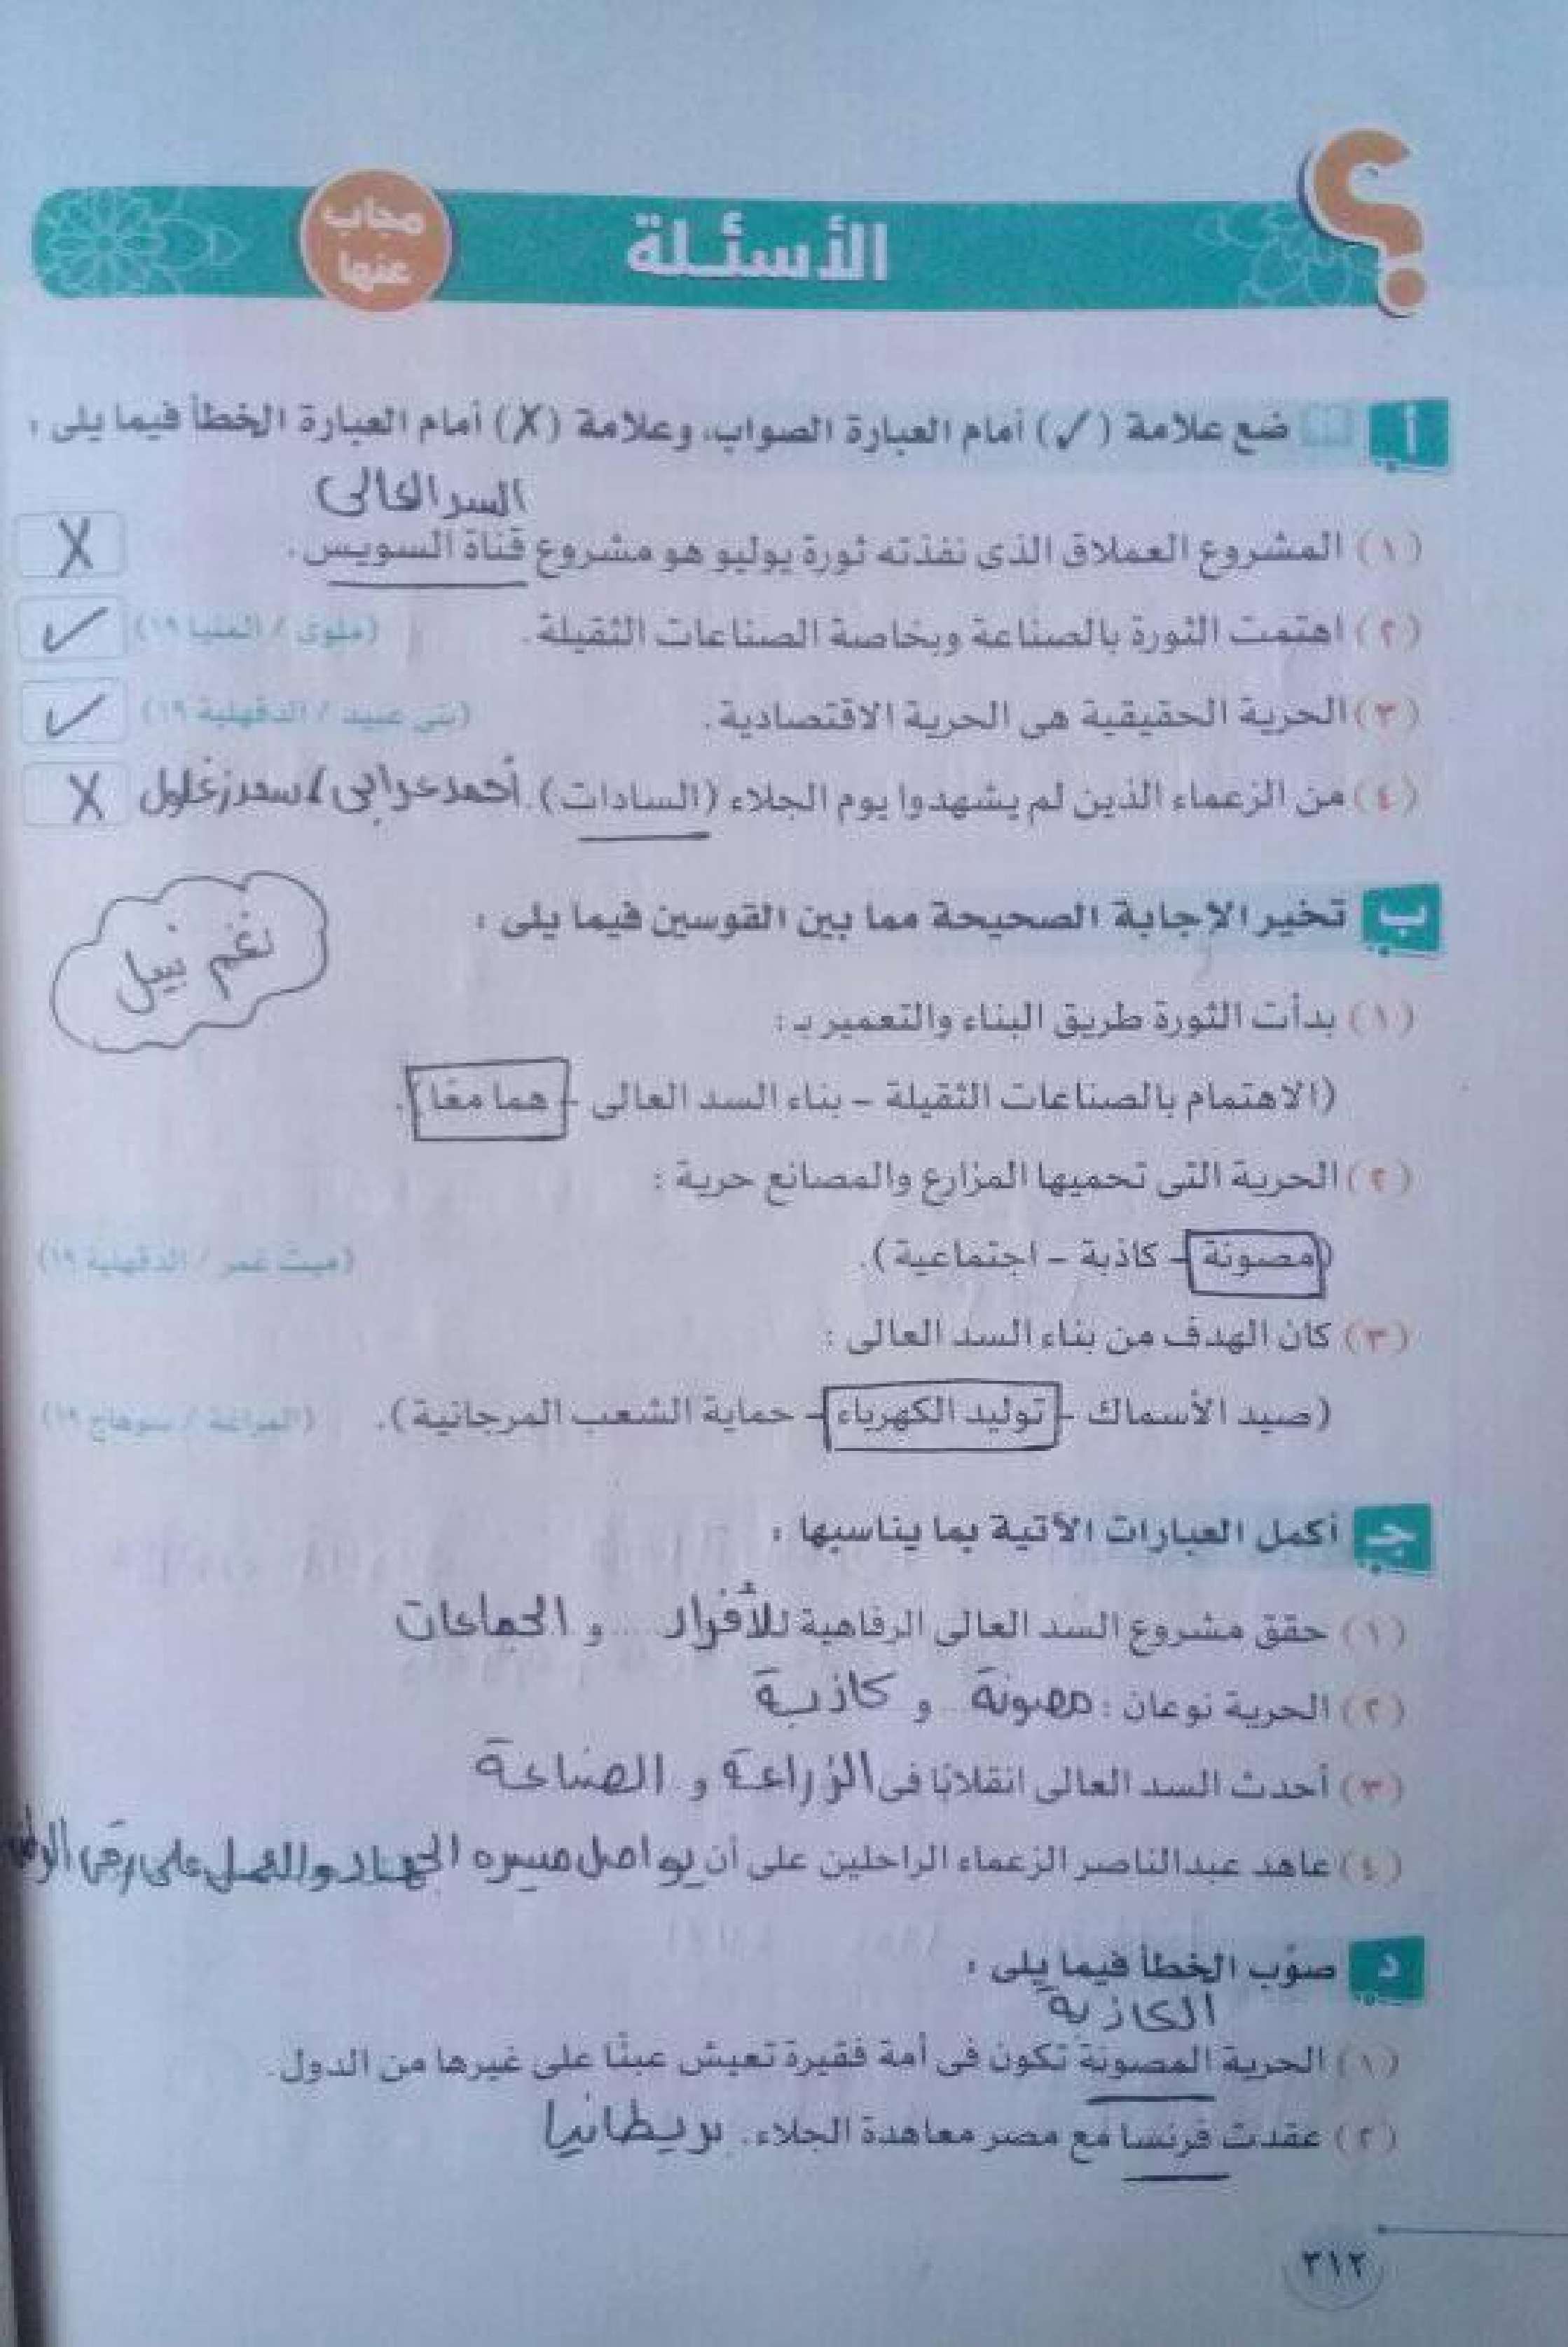 ؟
الأسئلة
مجاب
عنها
أ ضع علامة (✓) أمام العبارة الصواب، وعلامة (✗) أمام العبارة الخطأ فيما يلى :
السد العالى
(١) المشروع العملاق الذى نفذته ثورة يوليو هو مشروع قناة السويس. X
(٢) اهتمت الثورة بالصناعة وبخاصة الصناعات الثقيلة. (ملوى / المنيا ١٩) ✓
(٣) الحرية الحقيقية هى الحرية الاقتصادية. (بنى عبيد / الدقهلية ١٩) ✓
(٤) من الزعماء الذين لم يشهدوا يوم الجلاء (السادات). أحمد عرابى / سعد زغلول X
ب تخير الإجابة الصحيحة مما بين القوسين فيما يلى :
نغم نبيل
(١) بدأت الثورة طريق البناء والتعمير بـ :
(الاهتمام بالصناعات الثقيلة - بناء السد العالى - هما معًا).
(٢) الحرية التى تحميها المزارع والمصانع حرية :
(مصونة - كاذبة - اجتماعية). (ميت غمر / الدقهلية ١٩)
(٣) كان الهدف من بناء السد العالى :
(صيد الأسماك - توليد الكهرباء - حماية الشعب المرجانية). (المراغة / سوهاج ١٩)
جـ أكمل العبارات الآتية بما يناسبها :
(١) حقق مشروع السد العالى الرفاهية للأفراد .... و الجماعات
(٢) الحرية نوعان : مصونة .. و كاذبة
(٣) أحدث السد العالى انقلابًا فى الزراعة و الصناعة
(٤) عاهد عبدالناصر الزعماء الراحلين على أن يواصل مسيره الجهاد والعمل على رقى الوطن
د صوّب الخطأ فيما يلى :
الكاذبة
(١) الحرية المصونة تكون فى أمة فقيرة تعيش عبئًا على غيرها من الدول.
(٢) عقدت فرنسا مع مصر معاهدة الجلاء. بريطانيا
٣١٢